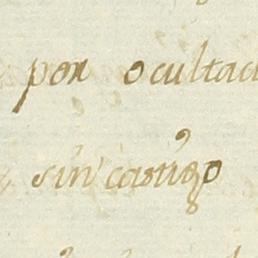 por ocultad
sin castigo